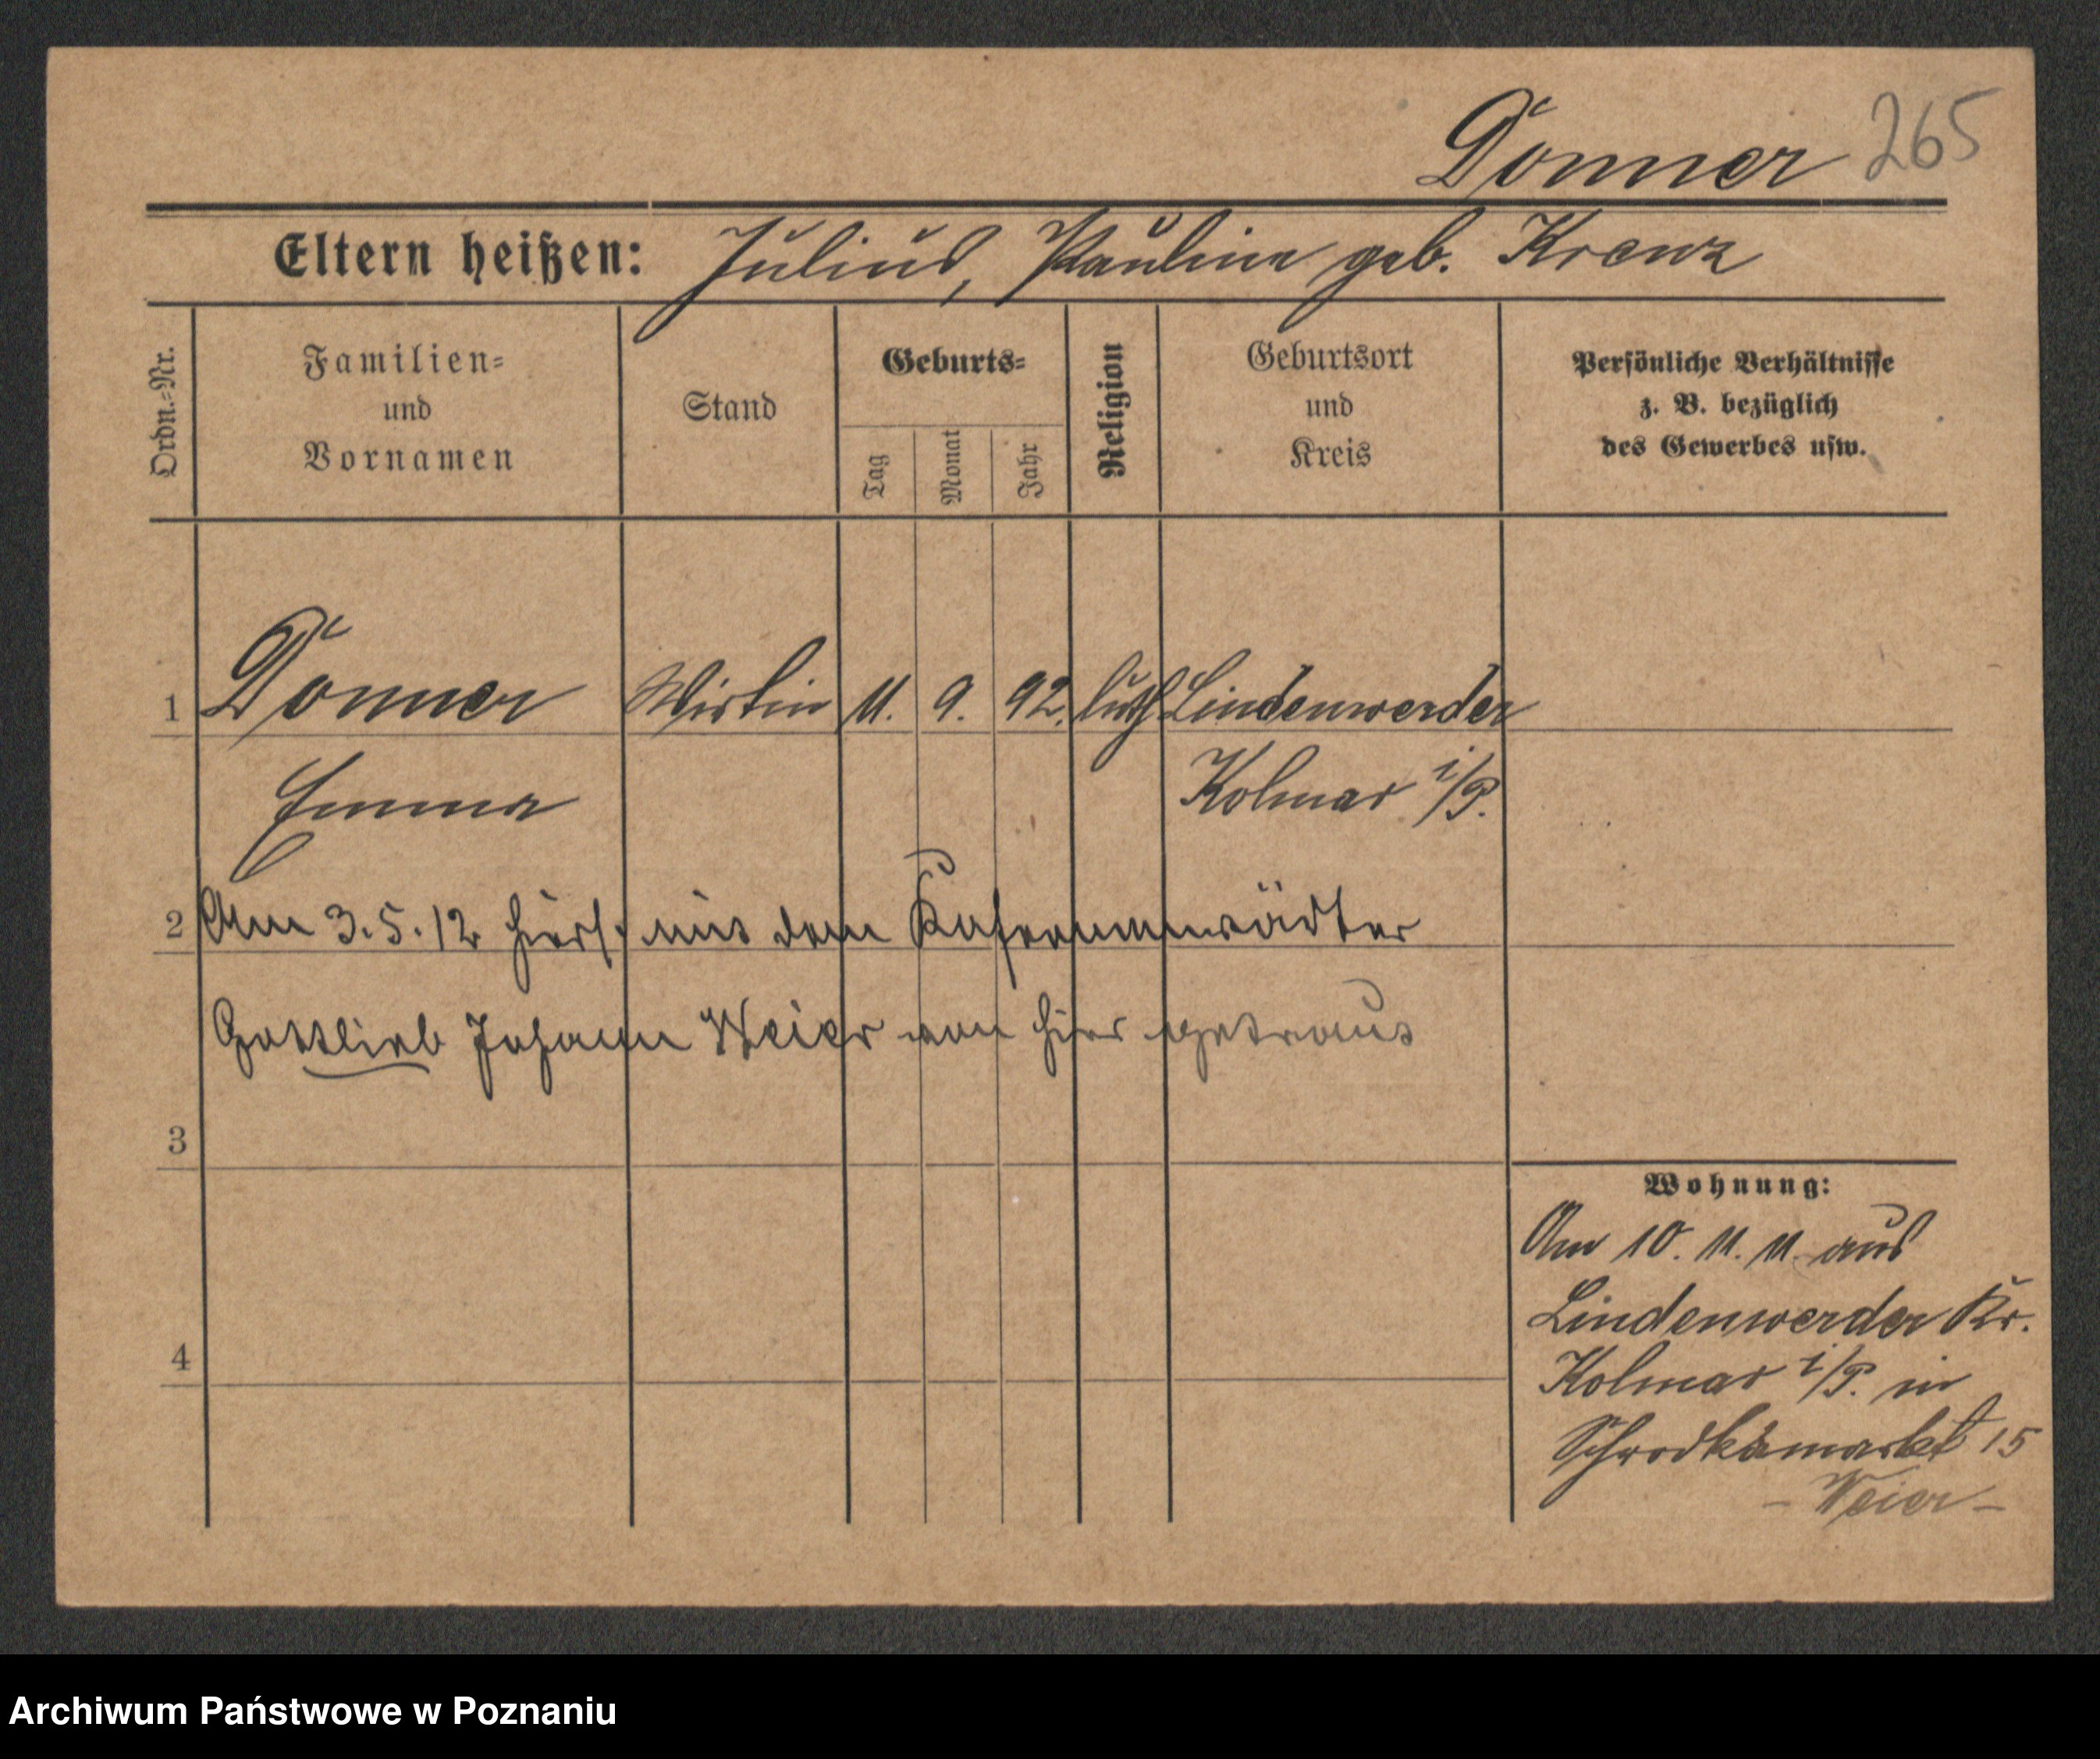 Donner 265
Eltern heißen: Julius, Pauline geb. Krenz
Ordn.-Nr.
Familien- und Vornamen
Stand
Geburts-
Tag
Monat
Jahr
Religion
Geburtsort und Kreis
Persönliche Verhältnisse z. B. bezüglich des Gewerbes usw.
1 Donner Wirtin 11. 9. 92. luth Lindenwerder
Emma Kolmar i/P.
2 Am 3.5.12 hiers. mit dem Kasernenwärter
Gottlieb Johann Weier von hier getraut
3
4
Wohnung:
Am 10. 11. 11. aus
Lindenwerder Kr.
Kolmar i/P. in
Schrodkamarkt 15
- Weier -
Archiwum Państwowe w Poznaniu